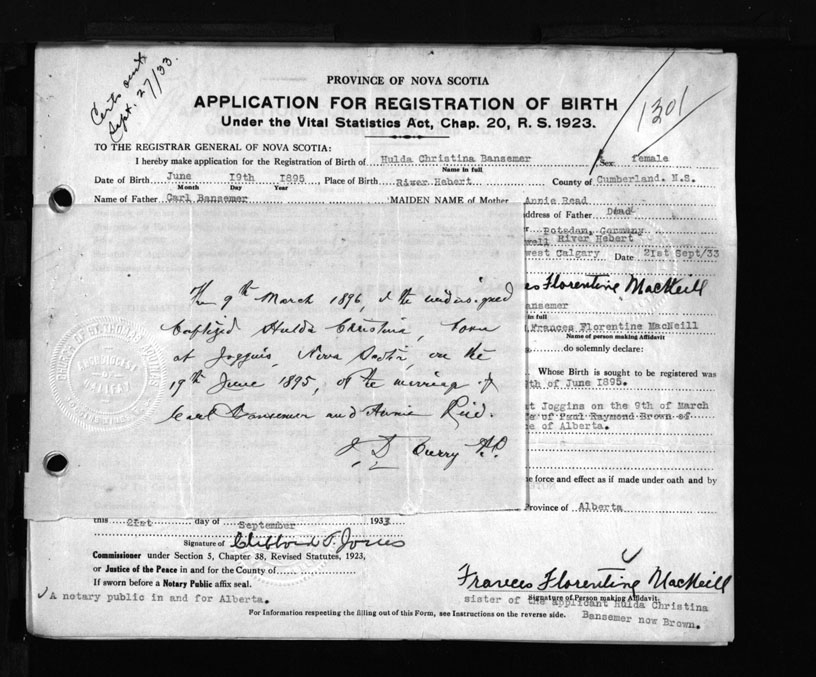 Certs out
Sept. 27/33.
1301
PROVINCE OF NOVA SCOTIA
APPLICATION FOR REGISTRATION OF BIRTH
Under the Vital Statistics Act, Chap. 20, R. S. 1923.
TO THE REGISTRAR GENERAL OF NOVA SCOTIA:
I hereby make application for the Registration of Birth of Hulda Christina Bansemer Sex female
Name in full
Date of Birth June 19th 1895 Place of Birth River Hebert County of Cumberland. N.S.
Month Day Year
Name of Father Carl Bansemer MAIDEN NAME of Mother Annie Read
address of Father Dead
Potsdam, Germany
well River Hebert
west Calgary Date 21st Sept/33
es Florentine MacNeill
ansemer
in full
Frances Florentine MacNeill
Name of person making Affidavit
do solemnly declare:
Whose Birth is sought to be registered was
9th of June 1895.
at Joggins on the 9th of March
e of Paul Raymond Brown of
e of Alberta.
e force and effect as if made under oath and by
Province of Alberta
The 9th March 1896, I the undersigned
baptized Hulda Christina, born
at Joggins, Nova Scotia, on the
19th June 1895, of the marriage of
Carl Bansemer and Annie Reid.
J D Curry P.P.
this 21st day of September 1933
Signature of Clifford T. Jones
Commissioner under Section 5, Chapter 38, Revised Statutes, 1923,
or Justice of the Peace in and for the County of
If sworn before a Notary Public affix seal.
A notary public in and for Alberta.
Frances Florentine MacNeill
Signature of Person making Affidavit
sister of the applicant Hulda Christina
Bansemer now Brown.
For Information respecting the filling out of this Form, see Instructions on the reverse side.